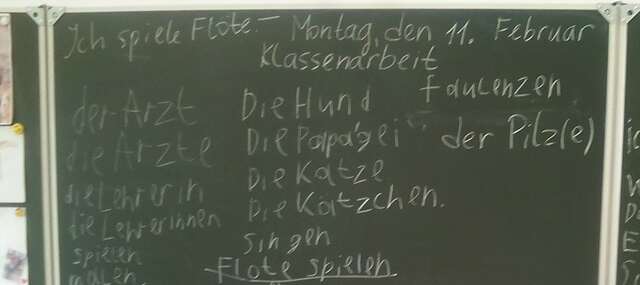 Ich spiele Flöte. – Montag, den 11. Februar
Klassenarbeit
der Arzt
die Ärzte
die Lehrerin
die Lehrerinnen
spielen
malen
Die Hund
Die Papagei
Die Katze
Die Kätzchen.
singen
Flöte spielen
faulenzen
der Pilz(e)